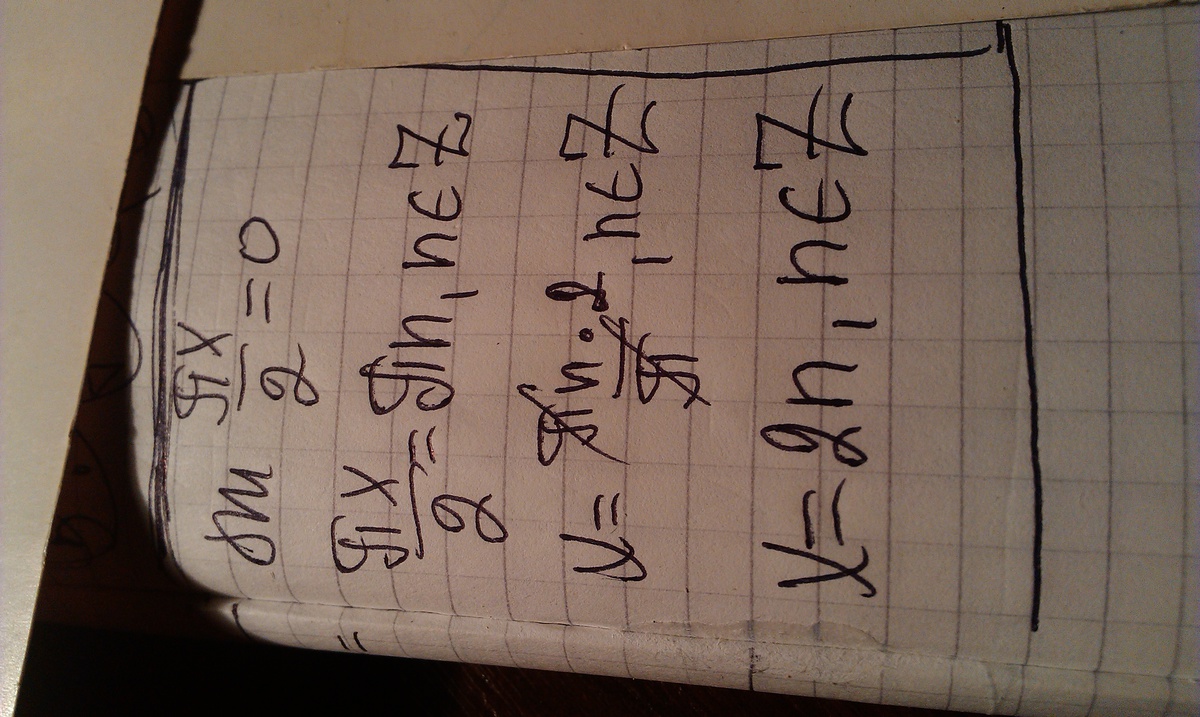 sin πx/2 = 0
πx/2 = πn, n∈Z
x = πn·2/π, n∈Z
x = 2n, n∈Z
=